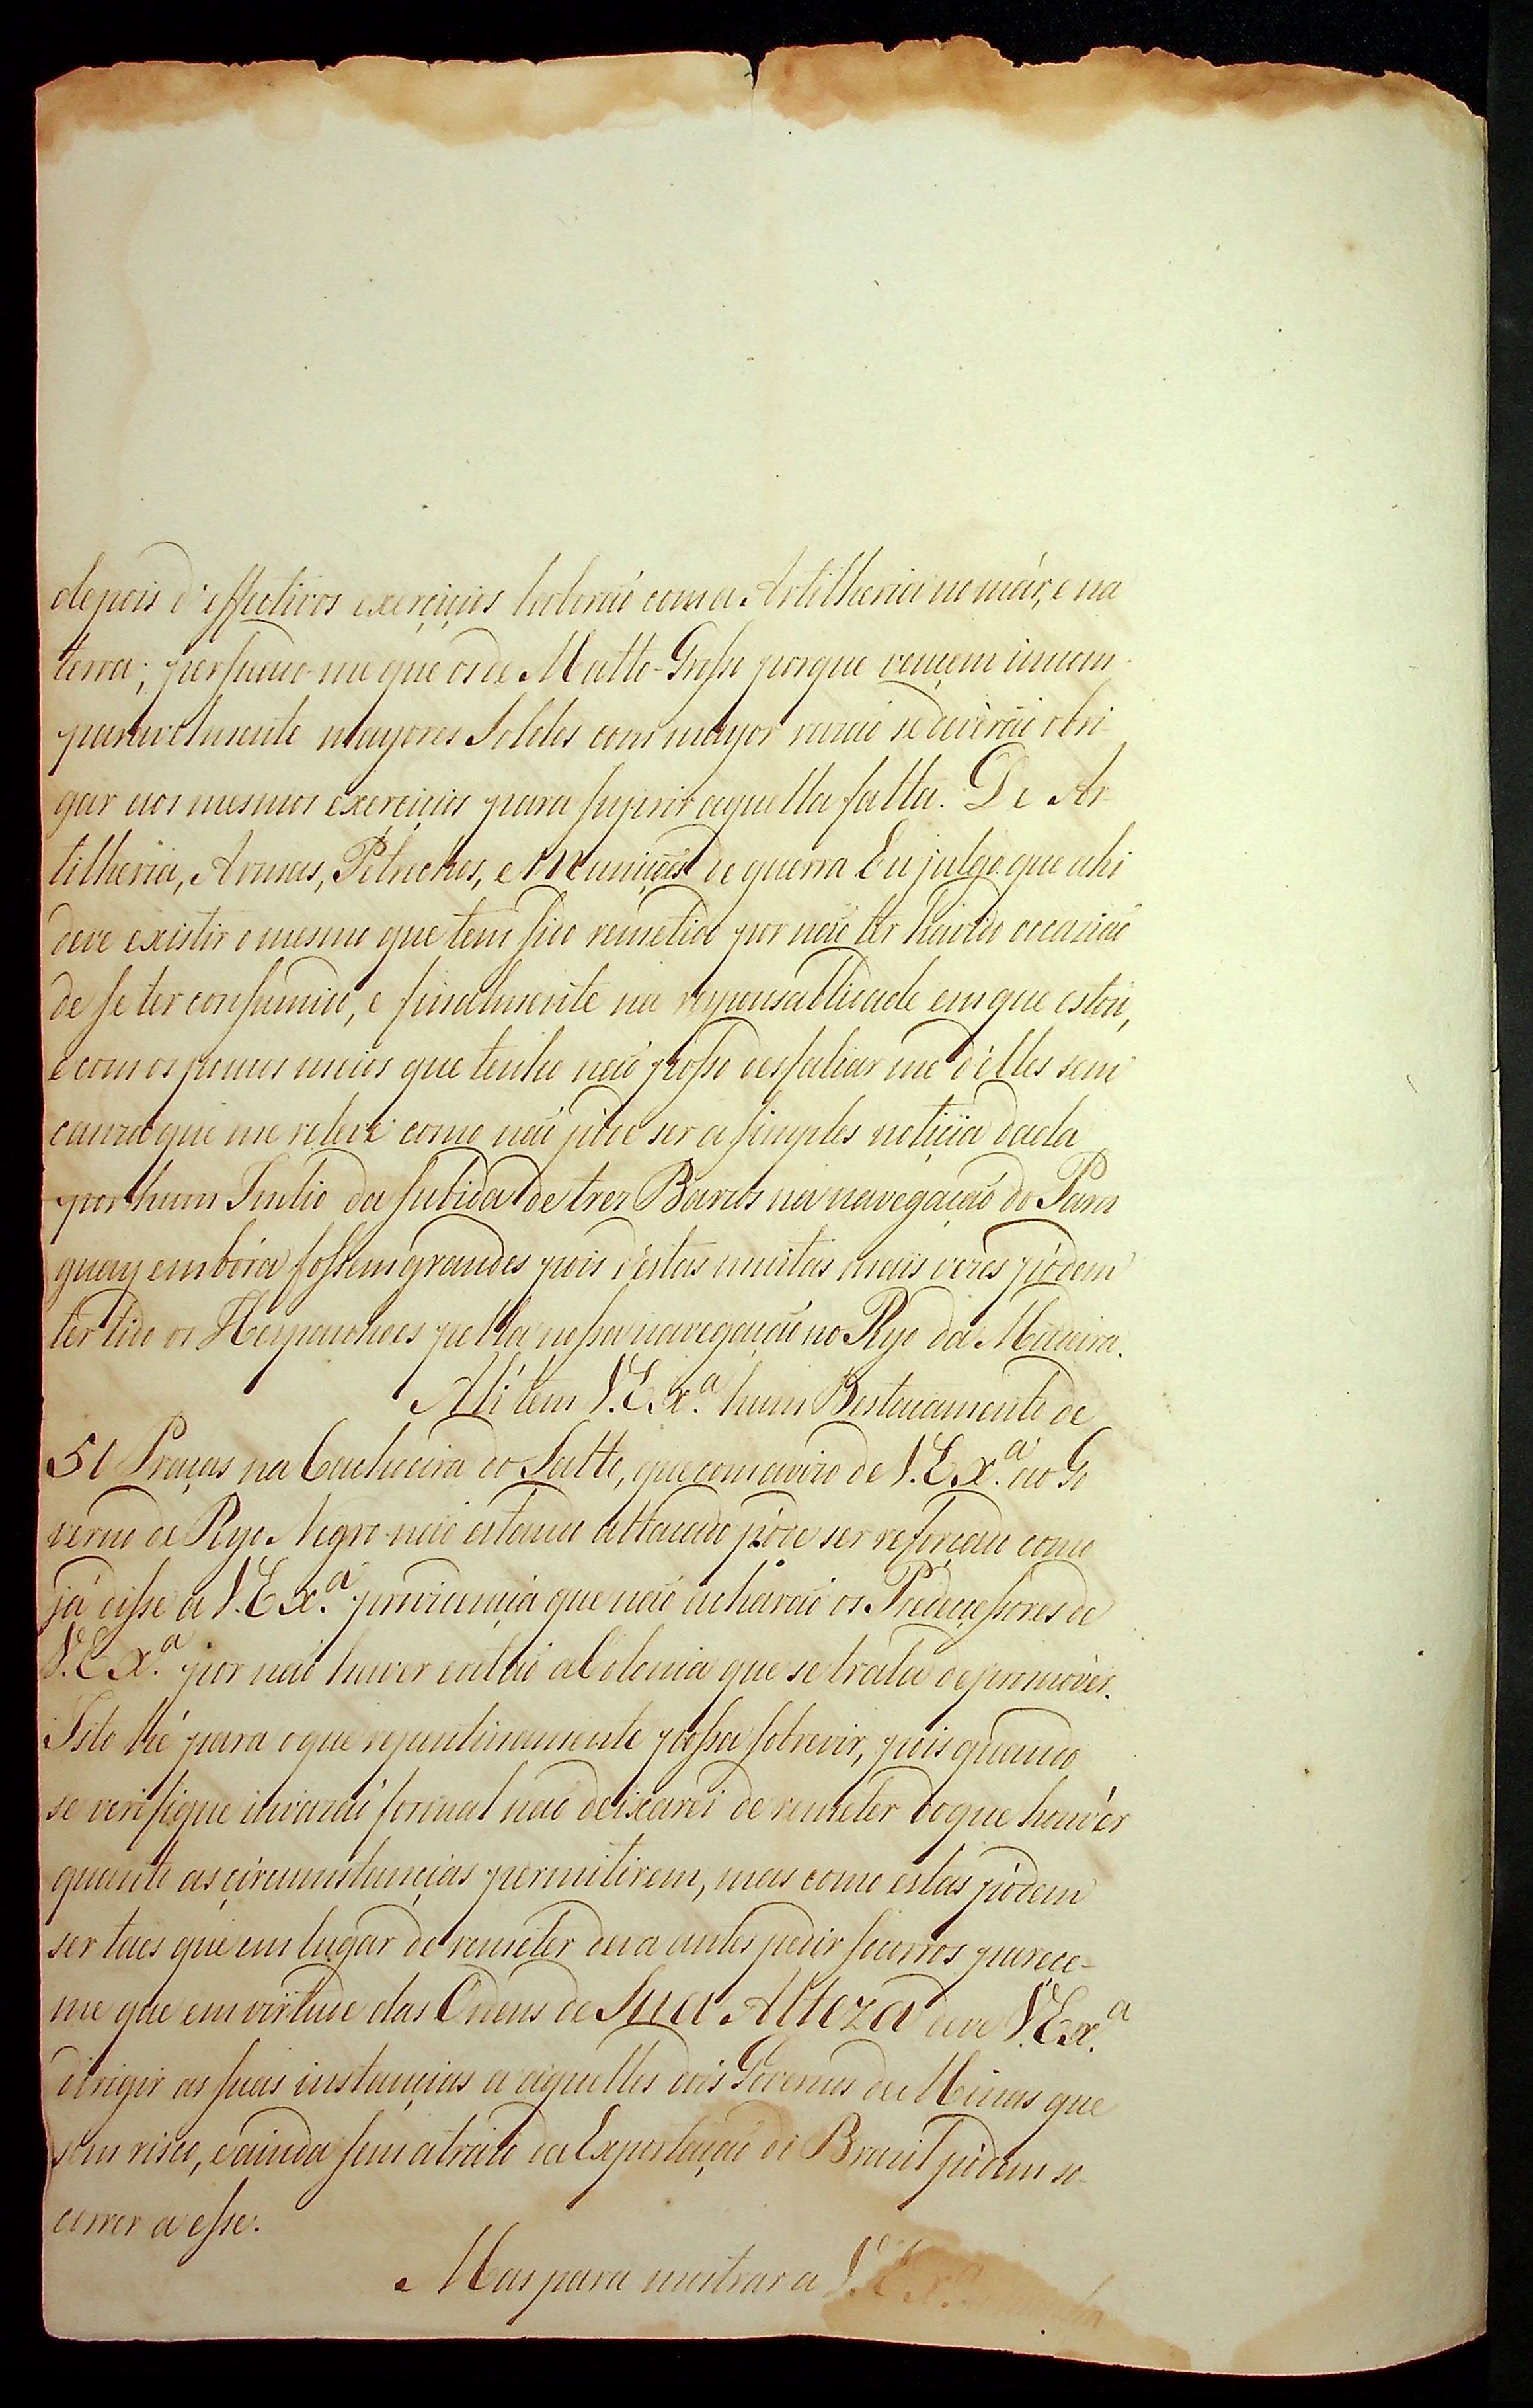 depois d'effectivos exerciçios laborão com a Artilheria no már, e na
terra; persuado-me que os de Matto-Grosso porque vençem incom-
paravelmente mayores Soldos com mayor razaõ se deverão obri-
gar aos mesmos exerciçios para suprir aquella falta. De Ar-
tilheria, Armas, Petrechos, e Muniçoẽs de guerra Eu julgo que ahi
deve existir o mesmo que tem sido remetido por naõ ter havido occaziaõ
de se ter consumido, e finalmente na responsabilidade em que estou,
e com os poucos meios que tenho naõ posso desfalcar me d'elles sem
cauza que me releve como naõ póde ser a simples notiçia dada
por hum Indio da subida de tres Barcos na navegaçaõ do Para
guay embóra fossem grandes pois d'estas muitas mais vezes pódem
ter tido os Hespanhoes pella nossa navegaçaõ no Ryo da Madeira.
Ali tem V. Ex.ª hum Destacamento de
50 Praças na Cachoeira do Salto, que com avizo de V. Ex.ª ao Go
verno de Ryo Negro naõ estando attacado póde ser reforçado como
já disse a V. Ex.ª providençia que naõ acharaõ os Predeçessores de
V. Ex.ª por naõ haver entaõ a Colonia que se trata de promover.
Isto hé para o que repentinamente possa sobrevir, pois quando
se verifique invazaõ formal naõ deixarei de remeter do que houvér
quanto as çircumstançias permitirem, mas como estas pódem
ser taes que em lugar de remeter deva antes pedir socorros parece-
me que em virtude das Ordens de Sua Alteza deve V. Ex.ª
dirigir as suas instançias a aquelles dois Governos de Minas que
sem risco, e ainda sem atrazo da Exportaçaõ do Brazil pódem so-
correr a esse.
Mas para mostrar a V. Ex.ª